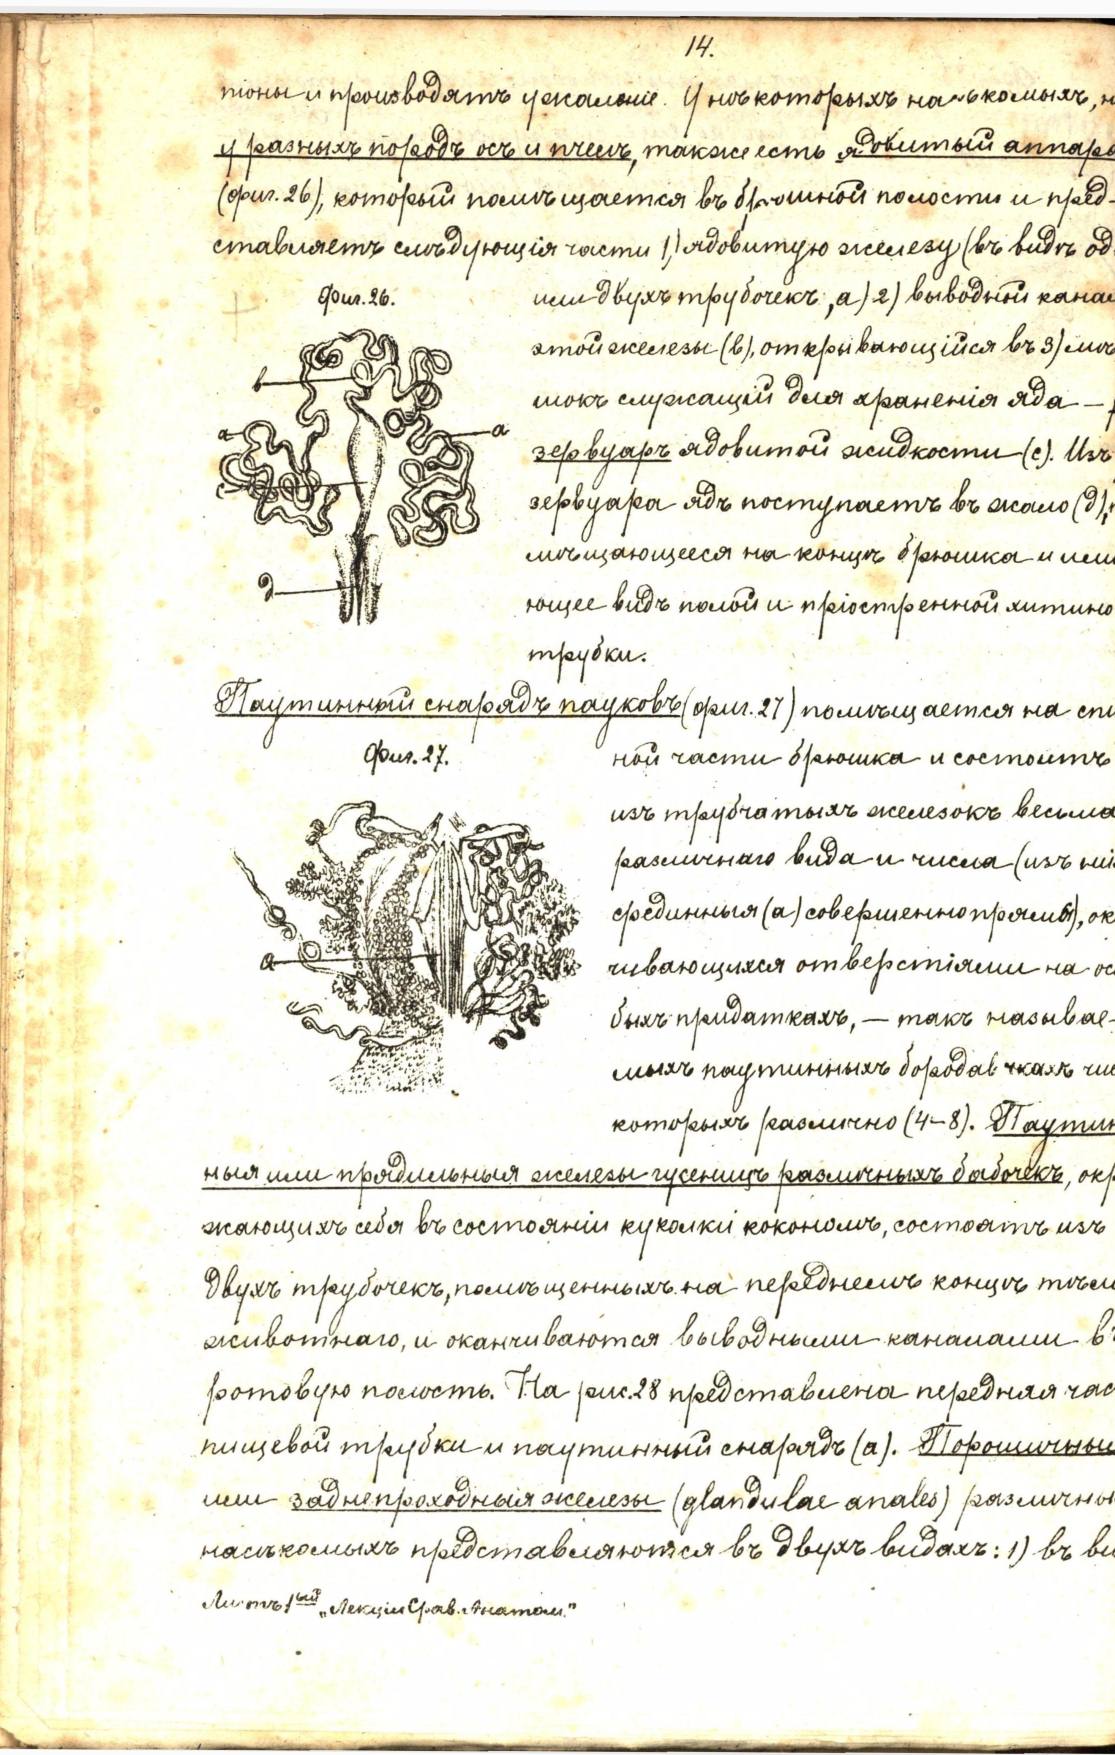 14.
піоны и производятъ ужаленіе. У нѣкоторыхъ насѣкомыхъ, н
у разныхъ породъ осъ и пчелъ, также есть ядовитый аппара
(фиг. 26), который помѣщается въ брюшной полости и пред-
ставляетъ слѣдующія части 1) ядовитую железу (въ видѣ од
Фиг. 26.
или двухъ трубочекъ, а) 2) выводной кана
этой железы (в), открывающійся въ 3) мѣ
шокъ служащій для храненія яда — р
зервуаръ ядовитой жидкости (с). Изъ
зервуара ядъ поступаетъ въ жало (д),
мѣщающееся на концѣ брюшка и им
ющее видъ полой и пріостренной хитино
трубки.
в
а
а
д
Паутинный снарядъ пауковъ (фиг. 27) помѣщается на спи
Фиг. 27.
ной части брюшка и состоитъ
изъ трубчатыхъ железокъ весьма
различнаго вида и числа (изъ ни
срединныя (а) совершенно прямы), ок
чивающихся отверстіями на ос
быхъ придаткахъ, — такъ называе-
мыхъ паутинныхъ бородавчкахъ чис
которыхъ различно (4–8). Паутин
а
ныя или прядильныя железы гусеницъ различныхъ бабочекъ, окр
жающихъ себя въ состояніи куколки кокономъ, состоятъ изъ
двухъ трубочекъ, помѣщенныхъ на переднемъ концѣ тѣл
животнаго, и оканчиваются выводными каналами в
ротовую полость. На рис. 28 представлена передняя час
пищевой трубки и паутинный снарядъ (а). Порошичны
или заднепроходныя железы (glandulae anales) различны
насѣкомыхъ представляются въ двухъ видахъ: 1) въ ви
Листъ 1ый „Лекціи Срав. Анатом."